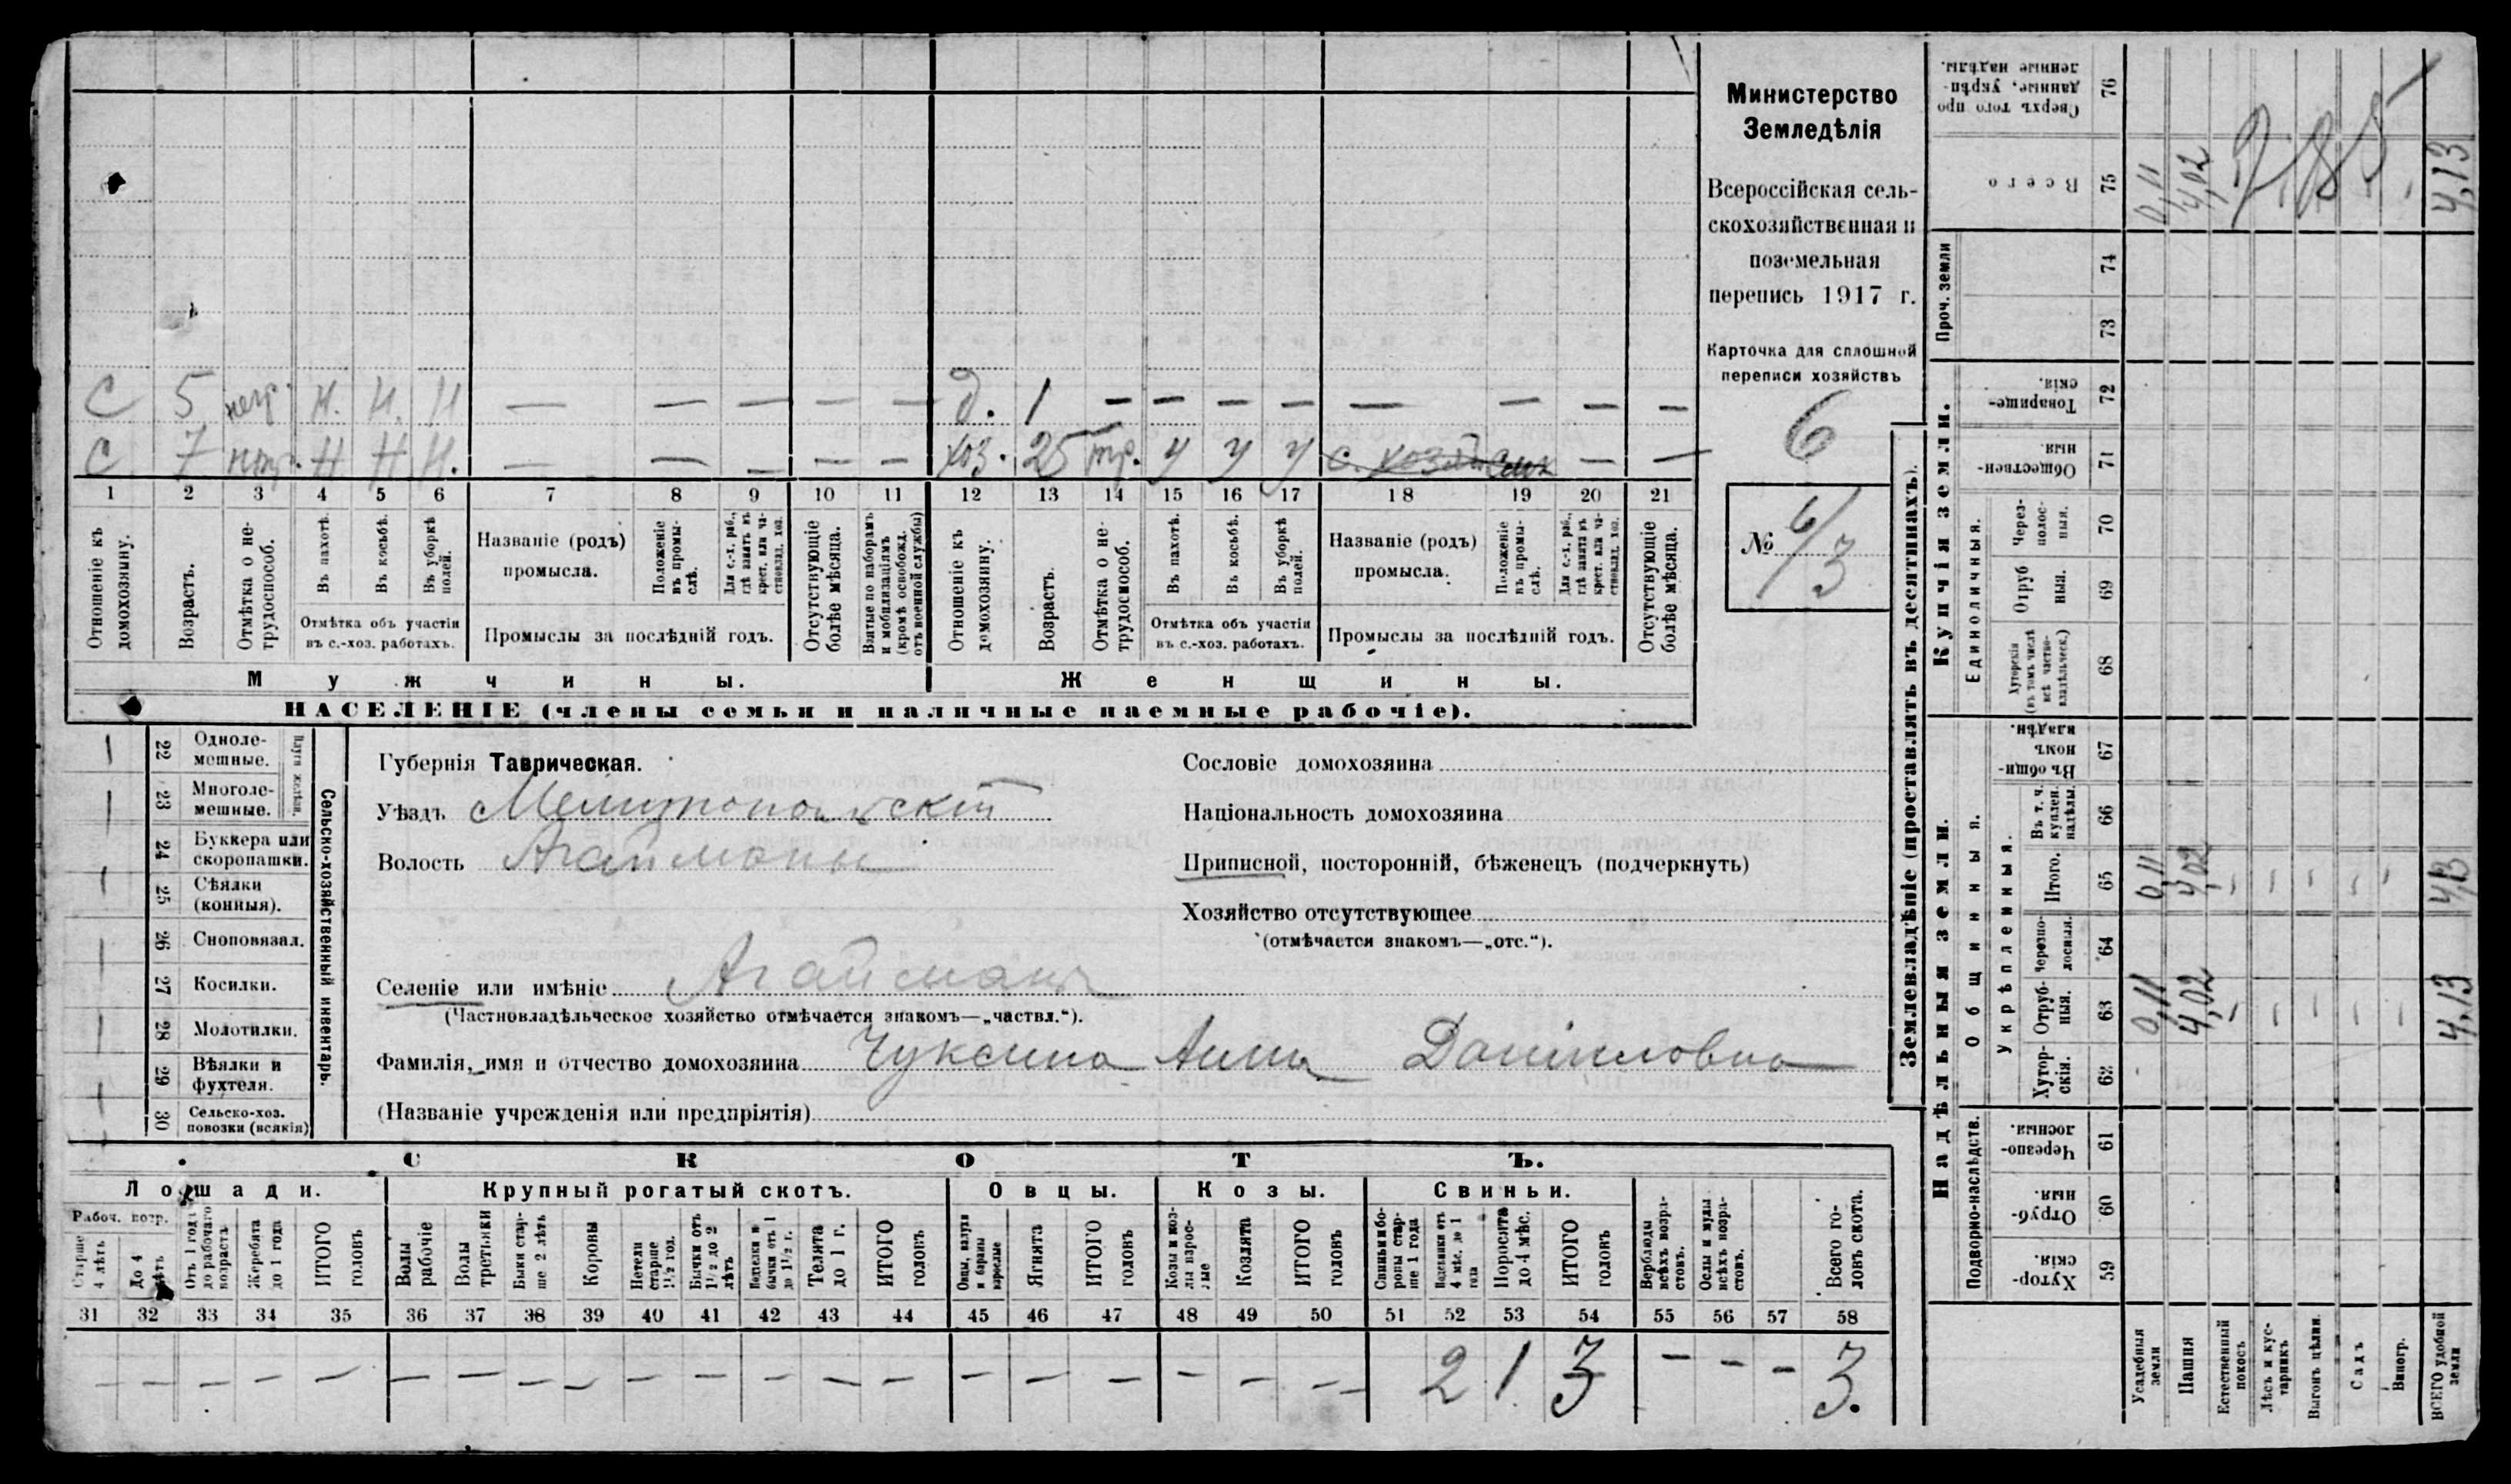 Министерство
Земледѣлія
Всероссійская сель-
скохозяйственная и
поземельная
перепись 1917 г.
Карточка для сплошной
переписи хозяйствъ
6
№ 6/3
С 5 нетр. Н. Н. Н — — — — — д. 1 — — — — — — — —
С 7 нетр. Н Н Н. — — — — — хоз. 25 тр. У У У с. хозяй — —
1 2 3 4 5 6 7 8 9 10 11 12 13 14 15 16 17 18 19 20 21
Отношеніе къ домохозяину.
Возрастъ.
Отмѣтка о не-
трудоспособ.
Въ пахотѣ.
Въ косьбѣ.
Въ уборкѣ
полей.
Отмѣтка объ участіи
въ с.-хоз. работахъ.
Названіе (родъ)
промысла.
Положеніе
въ промы-
слѣ.
Для с.-х. раб.,
гдѣ занятъ въ
крест. или ча-
стновлад. хоз.
Промыслы за послѣдній годъ.
Отсутствующіе
болѣе мѣсяца.
Взятые по наборамъ
и мобилизаціямъ
(кромѣ освобожд.
отъ военной службы)
Отношеніе къ
домохозяину.
Возрастъ.
Отмѣтка о не-
трудоспособ.
Въ пахотѣ.
Въ косьбѣ.
Въ уборкѣ
полей.
Отмѣтка объ участіи
въ с.-хоз. работахъ.
Названіе (родъ)
промысла.
Положеніе
въ промы-
слѣ.
Для с.-х. раб.,
гдѣ занята въ
крест. или ча-
стновлад. хоз.
Промыслы за послѣдній годъ.
Отсутствующіе
болѣе мѣсяца.
Мужчины. Женщины.
НАСЕЛЕНІЕ (члены семьи и наличные наемные рабочіе).
Сельско-хозяйственный инвентарь.
22 Одноле-
мешные.
23 Многоле-
мешные.
24 Буккера или
скоропашки.
25 Сѣялки
(конныя).
26 Сноповязал.
27 Косилки.
28 Молотилки.
29 Вѣялки и
фухтеля.
30 Сельско-хоз.
повозки (всякія)
Губернія Таврическая.
Уѣздъ Мелитопольскій
Волость Агайманы
Селеніе или имѣніе Агайманы
(Частновладѣльческое хозяйство отмѣчается знакомъ—„частвл.“).
Фамилія, имя и отчество домохозяина Чуксина Анна Даниловна
(Названіе учрежденія или предпріятія)
Сословіе домохозяина
Національность домохозяина
Приписной, посторонній, бѣженецъ (подчеркнуть)
Хозяйство отсутствующее
(отмѣчается знакомъ—„отс.“).
СКОТЪ.
Лошади. Крупный рогатый скотъ. Овцы. Козы. Свиньи.
Рабоч. возр.
Старше
4 лѣтъ
До 4
лѣтъ
Отъ 1 года
до рабочаго
возраста
Жеребята
до 1 года
ИТОГО
головъ
Волы
рабочіе
Волы
третьяки
Быки стар-
ше 2 лѣтъ
Коровы
Нетели
старше
1½ год.
Бычки отъ
1½ до 2
лѣтъ
Нетелки и
бычки отъ 1
до 1½ г.
Телята
до 1 г.
ИТОГО
головъ
Овцы, валухи
и бараны
взрослые
Ягнята
ИТОГО
головъ
Козы и коз-
лы взрос-
лые
Козлята
ИТОГО
головъ
Свиньи и бо-
ровы стар-
ше 1 года
Подсвинки отъ
4 мѣс. до 1
года
Поросята
до 4 мѣс.
ИТОГО
головъ
Верблюды
всѣхъ возра-
стовъ.
Ослы и мулы
всѣхъ возра-
стовъ.
Всего го-
ловъ скота.
31 32 33 34 35 36 37 38 39 40 41 42 43 44 45 46 47 48 49 50 51 52 53 54 55 56 57 58
— — — — — — — — — — — — — — — — — — — — 2 1 3 — — — 3.
Землевладѣніе (проставлять въ десятинахъ).
Надѣльныя земли. Купчія земли. Проч. земли
Подворно-наслѣдств.
Общинныя.
Укрѣпленныя.
Единоличныя.
Хутор-
скія. 59
Отруб-
ныя. 60
Черезпо-
лосныя. 61
Хутор-
скія. 62
Отруб-
ныя. 63
Черезпо-
лосныя. 64
Итого. 65
Въ т. ч.
куплен.
надѣлы. 66
Въ общи-
номъ
владѣн. 67
Хуторскія
(въ томъ числѣ
всѣ частно-
владѣльческ.) 68
Отруб
ныя. 69
Через-
полос-
ныя. 70
Обществен-
ныя 71
Товарище-
скія. 72
73
74
Всего 75
Сверхъ того про
данные, укрѣп-
ленные надѣлы. 76
Усадебныя
земли
Пашня
Естественный
покосъ
Лѣсъ и кус-
тарникъ
Выгонъ цѣлин.
Садъ
Виногр.
ВСЕГО удобной
земли
0,11 4,02 — — — — 4,13
0,11 4,02 — — — — — 4,13
0,11 4,02 4,13